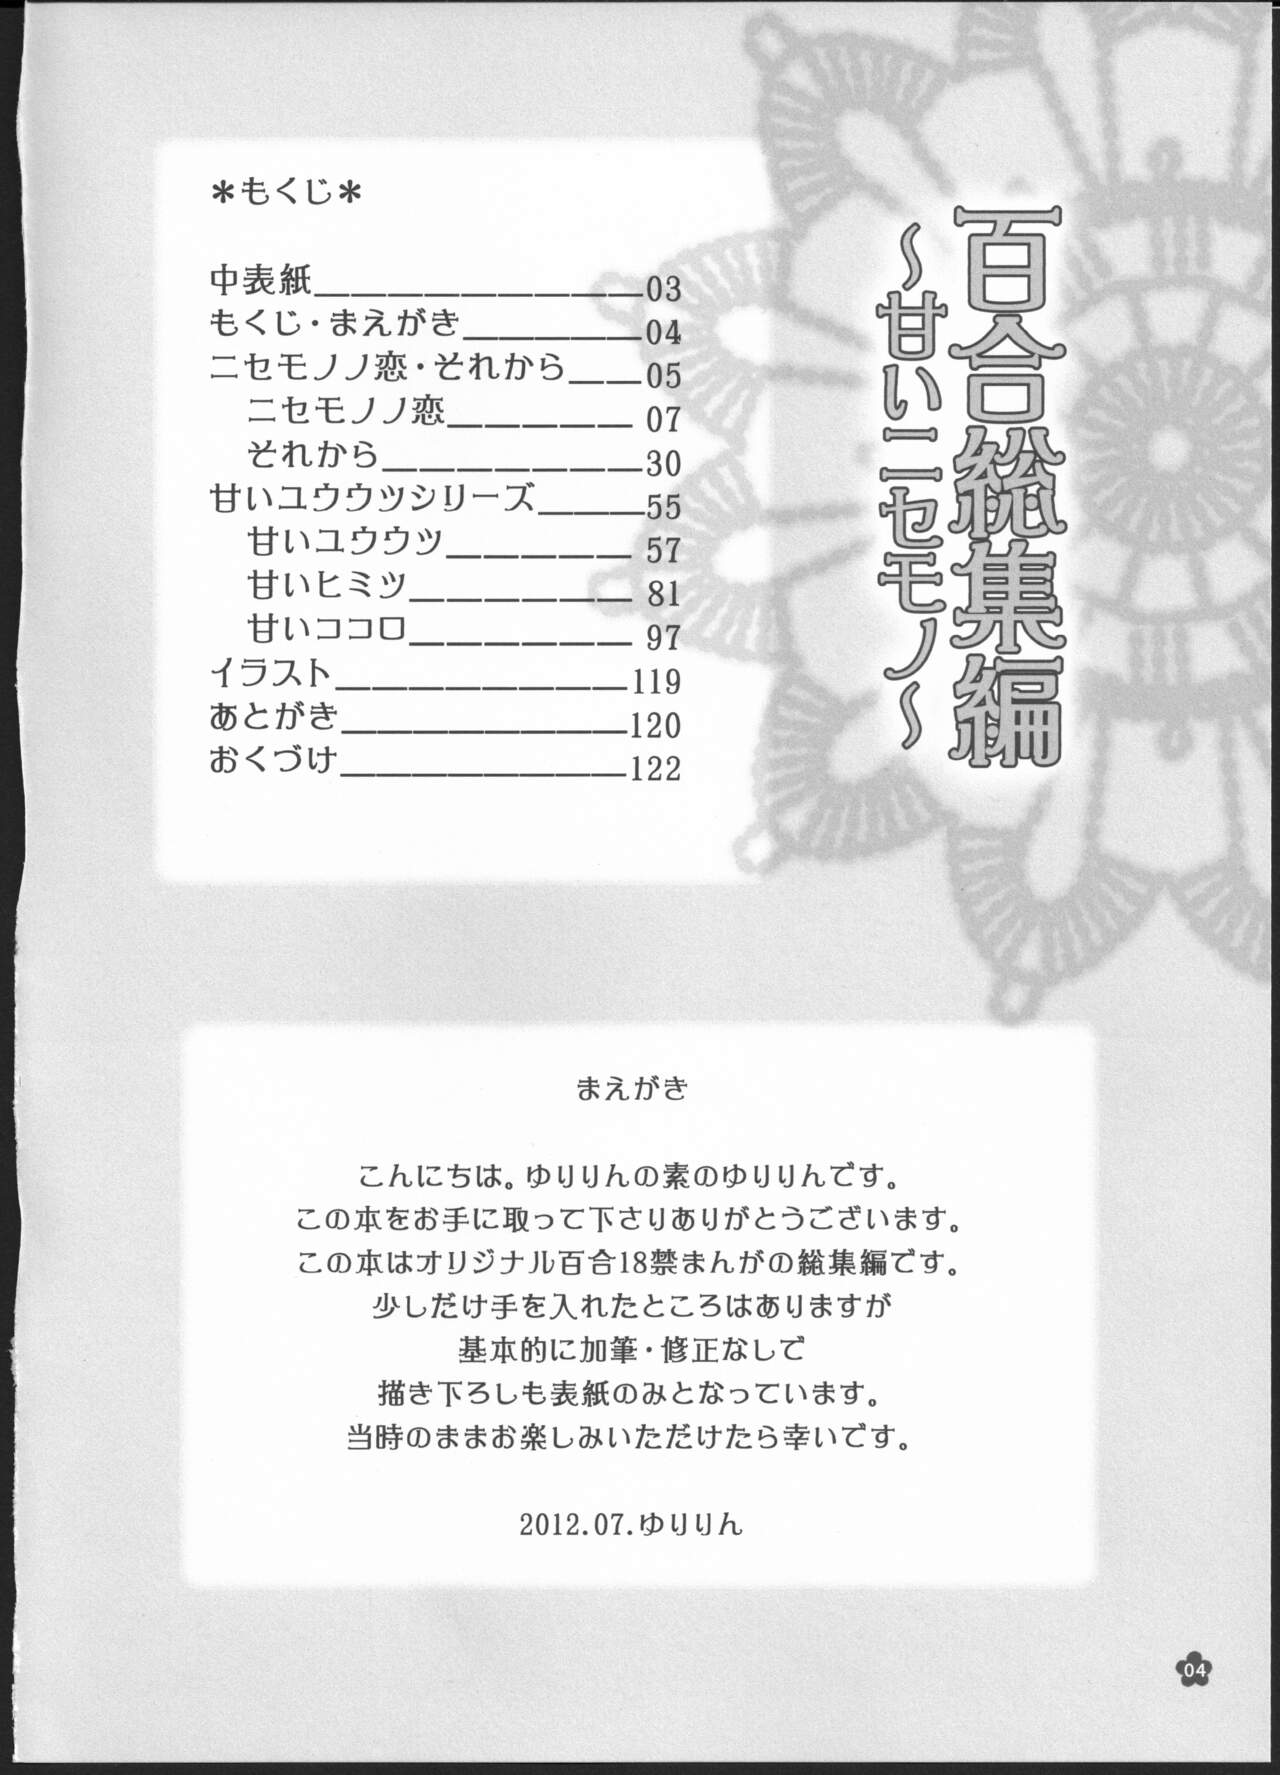 百合総集編
～甘いニセモノ～
＊もくじ＊
中表紙＿＿＿＿＿＿＿＿＿03
もくじ・まえがき＿＿＿＿＿04
ニセモノノ恋・それから＿＿05
ニセモノノ恋＿＿＿＿＿07
それから＿＿＿＿＿＿＿30
甘いユウウツシリーズ＿＿＿55
甘いユウウツ＿＿＿＿＿57
甘いヒミツ＿＿＿＿＿＿81
甘いココロ＿＿＿＿＿＿97
イラスト＿＿＿＿＿＿＿＿119
あとがき＿＿＿＿＿＿＿＿120
おくづけ＿＿＿＿＿＿＿＿122
まえがき
こんにちは。ゆりりんの素のゆりりんです。
この本をお手に取って下さりありがとうございます。
この本はオリジナル百合18禁まんがの総集編です。
少しだけ手を入れたところはありますが
基本的に加筆・修正なしで
描き下ろしも表紙のみとなっています。
当時のままお楽しみいただけたら幸いです。
2012.07.ゆりりん
04